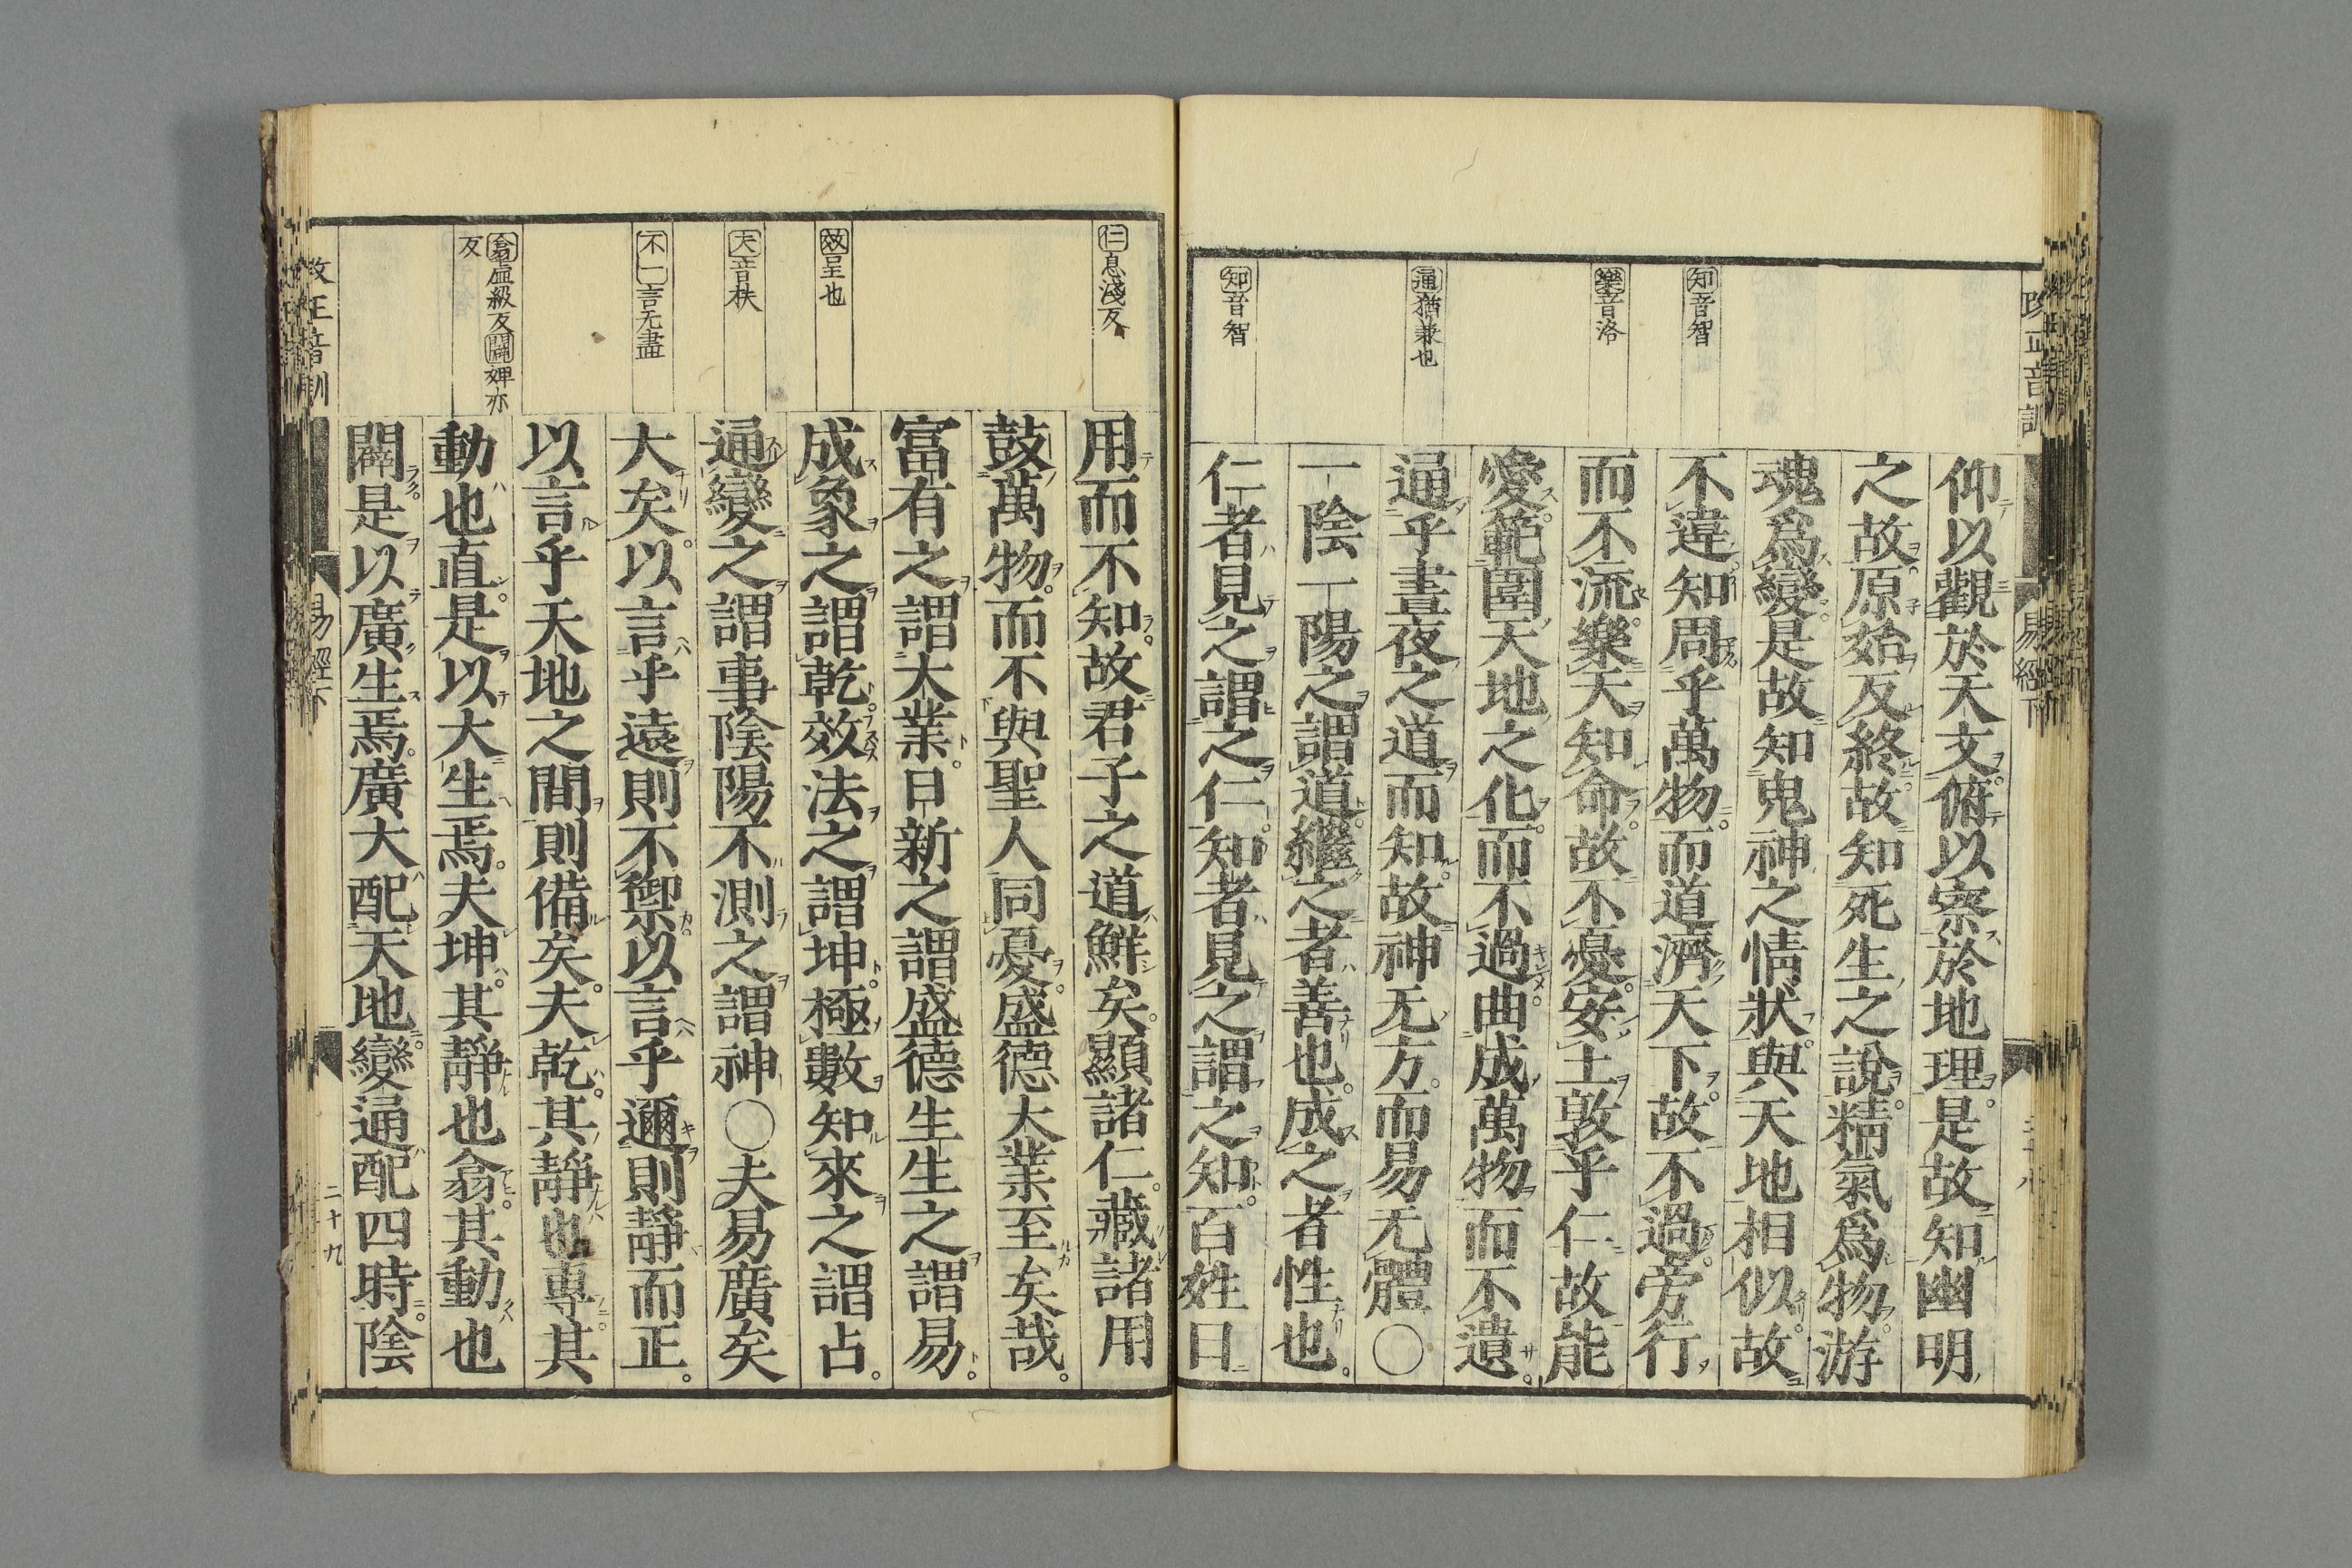 知音智
樂音洛
通猶兼也
知音智
仰以觀於天文俯以察於地理是故知幽明
之故原始反終故知死生之說精氣爲物游
魂爲變是故知鬼神之情狀與天地相似故
不違知周乎萬物而道濟天下故不過旁行
而不流樂天知命故不憂安土敦乎仁故能
愛範圍天地之化而不過曲成萬物而不遺
通乎晝夜之道而知故神无方而易无體○
一陰一陽之謂道繼之者善也成之者性也
仁者見之謂之仁知者見之謂之知百姓日
仁息淺反
效呈也
天音杕
不一言无盡
翕虛級反闢婢亦
反
用而不知故君子之道鮮矣顯諸仁藏諸用
鼓萬物而不與聖人同憂盛德大業至矣哉
富有之謂大業日新之謂盛德生生之謂易
成象之謂乾效法之謂坤極數知來之謂占
通變之謂事陰陽不測之謂神○夫易廣矣
大矣以言乎遠則不禦以言乎邇則靜而正
以言乎天地之間則備矣夫乾其靜也專其
動也直是以大生焉夫坤其靜也翕其動也
闢是以廣生焉廣大配天地變通配四時陰
改正音訓
易經下
二十九